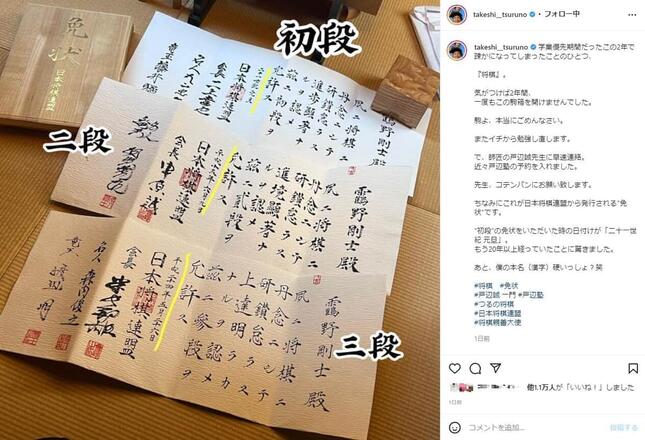 免状
日本将棋連盟
初段
靏野剛士殿
夙ニ将棋ニ
丹念ニシテ
研鑽怠ラス
進歩顕著ナ
ルヲ認メ
茲ニ初段ヲ
允許ス
日本将棋連盟
会長
二段
靏野剛士殿
夙ニ将棋ニ
丹念ニシテ
研鑽怠ラス
進境顕著ナ
ルヲ認メ
茲ニ弐段ヲ
允許ス
日本将棋連盟
会長
三段
靏野剛士殿
夙ニ将棋ニ
丹念ニシテ
研鑽怠ラス
上達明ラカ
ナルヲ認メ
茲ニ参段ヲ
允許ス
平成二十四年五月二十六日
日本将棋連盟
会長 米長邦雄
名人 森内俊之
竜王 渡辺明
takeshi__tsuruno • フォロー中
takeshi__tsuruno 学業優先期間だったこの2年で
疎かになってしまったことのひとつ、
『将棋』。
気がつけば2年間、
一度もこの駒箱を開けませんでした。
駒よ、本当にごめんなさい。
またイチから勉強し直します。
で、師匠の戸辺誠先生に早速連絡。
近々戸辺塾の予約を入れました。
先生、コテンパンにお願い致します。
ちなみにこれが日本将棋連盟から発行される“免
状”です。
“初段”の免状をいただいた時の日付けが「二十一世
紀 元旦」。
もう20年以上経っていたことに驚きました。
あと、僕の本名（漢字）硬いっしょ？笑
#将棋 #免状
#戸辺誠一門 #戸辺塾
#つるの将棋
#日本将棋連盟
#将棋親善大使
1日前
他1.1万人が「いいね！」しました
1日前
コメントを追加...
投稿する